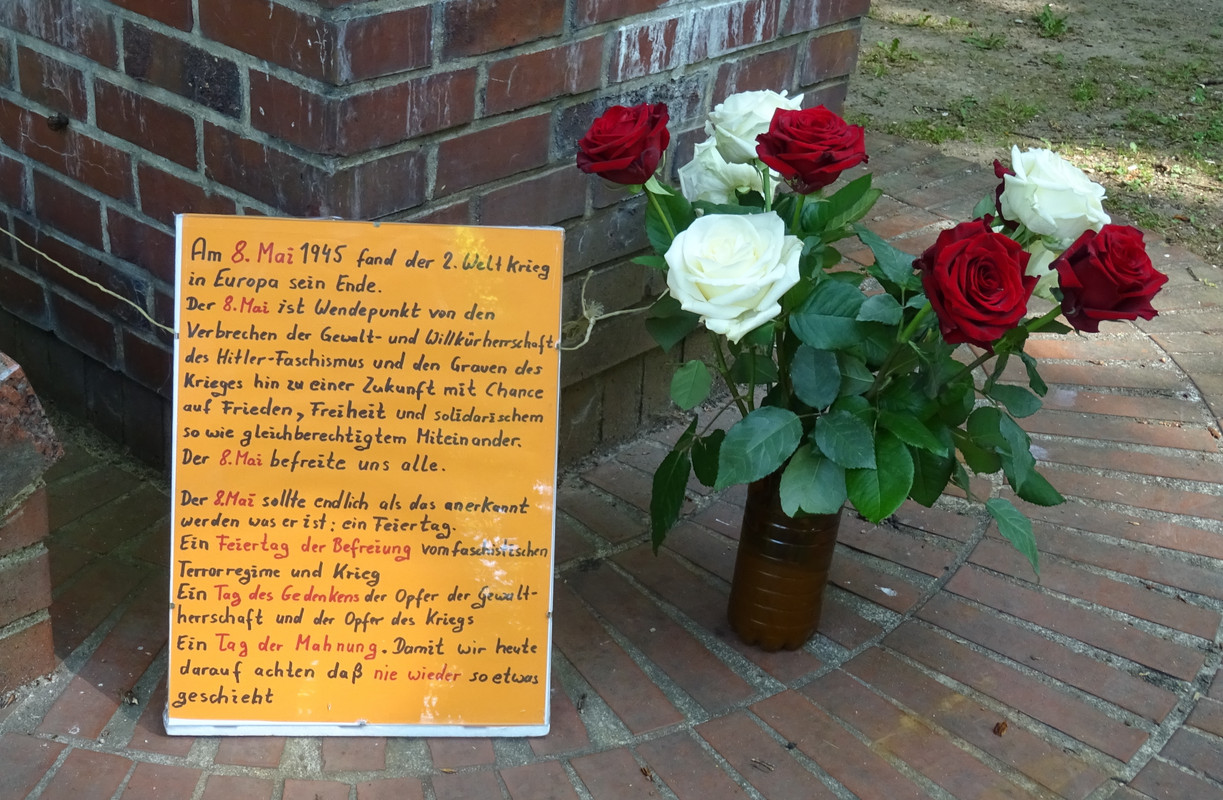 Am 8. Mai 1945 fand der 2. Welt Krieg
in Europa sein Ende.
Der 8.Mai ist Wendepunkt von den
Verbrechen der Gewalt- und Willkürherrschaft
des Hitler-Faschismus und den Grauen des
Krieges hin zu einer Zukunft mit Chance
auf Frieden, Freiheit und solidarischem
so wie gleichberechtigtem Miteinander.
Der 8.Mai befreite uns alle.
Der 8.Mai sollte endlich als das anerkannt
werden was er ist: ein Feiertag.
Ein Feiertag der Befreiung vom faschistischen
Terrorregime und Krieg
Ein Tag des Gedenkens der Opfer der Gewalt-
herrschaft und der Opfer des Kriegs
Ein Tag der Mahnung. Damit wir heute
darauf achten daß nie wieder so etwas
geschieht